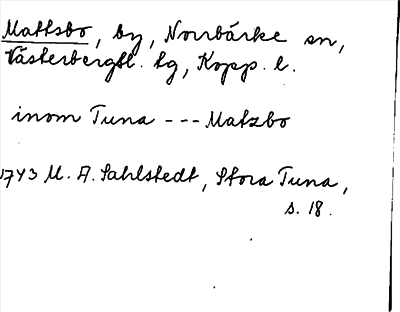 Mattsbo, by, Norrbärke sn,
Västerbergsl. tg, Kopp. l.
inom Tuna --- Matzbo
1743 M. A. Sahlstedt, Stora Tuna,
s. 18.